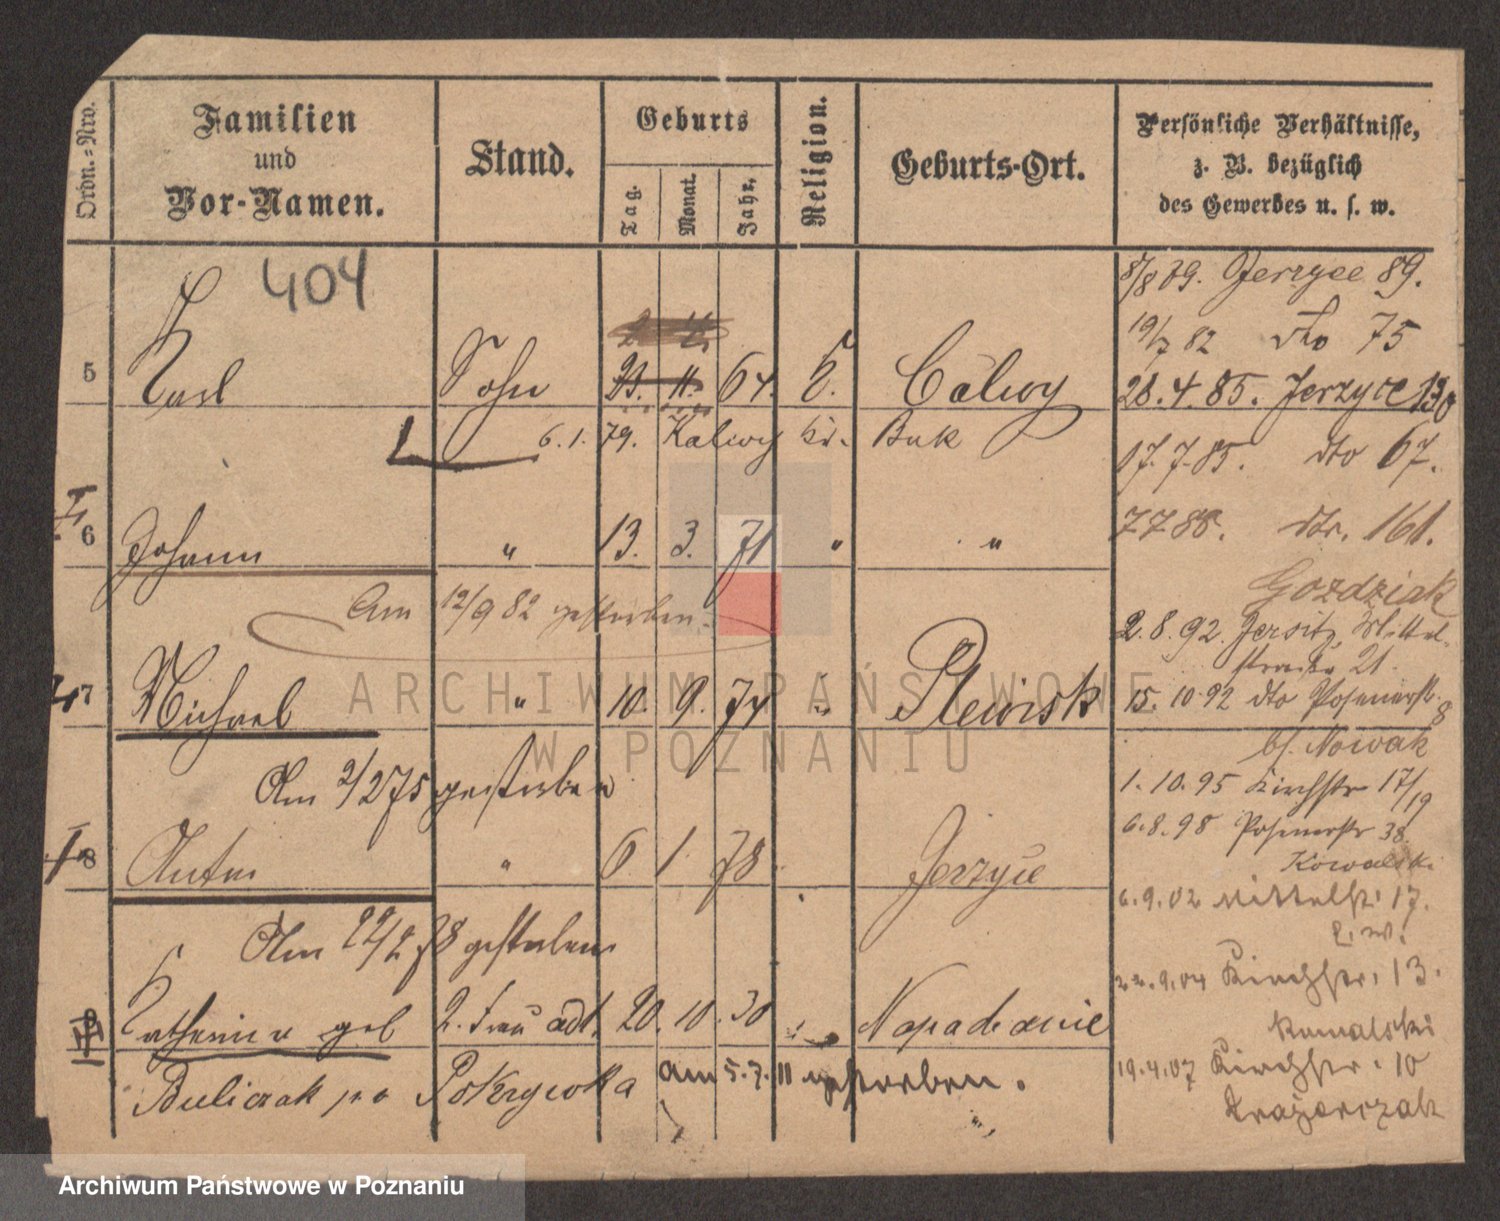 Ordn.=Nro.
Familien
und
Vor-Namen.
Stand.
Geburts
Tag.
Monat.
Jahr.
Religion.
Geburts-Ort.
Persönliche Verhältnisse,
z. B. bezüglich
des Gewerbes u. s. w.
404
8/8 79. Jerzyce 89.
19/7 82 dto 75
5 Karl Sohn 21. 11. 64. k. Calwy
28.4.85. Jerzyce 130
6.1.79. Kalwy Kr. Buk
17.7.85. dto 67.
6 Johann " 13. 3. 71 " "
7 7 88. dto. 161.
Gozdziak
Am 12/9 82 gestorben.
2.8.92. Jersitz, Mittel-
strasse 21.
7 Michael " 10. 9. 74 " Plewisk
15.10.92 dto Posenerstr. 8
b/. Nowak
Am 2/2 75 gestorben
1.10.95 Kirchstr 17/19
6.8.98 Posenerstr 38.
8 Anton " 6 1 78 Jerzyce
Kowalski
6.9.02 Mittelstr. 17.
Am 22/2 78 gestorben
22.9.04 Kirchstr. 13.
9 Katharina geb 2. Frau adt. 20. 10. 30 Napachanie
Kowalski
Buliczak p.v. Pokrywka am 5.7.11 gestorben.
19.4.07 Kirchstr. 10
ARCHIWUM PAŃSTWOWE
W POZNANIU
Archiwum Państwowe w Poznaniu